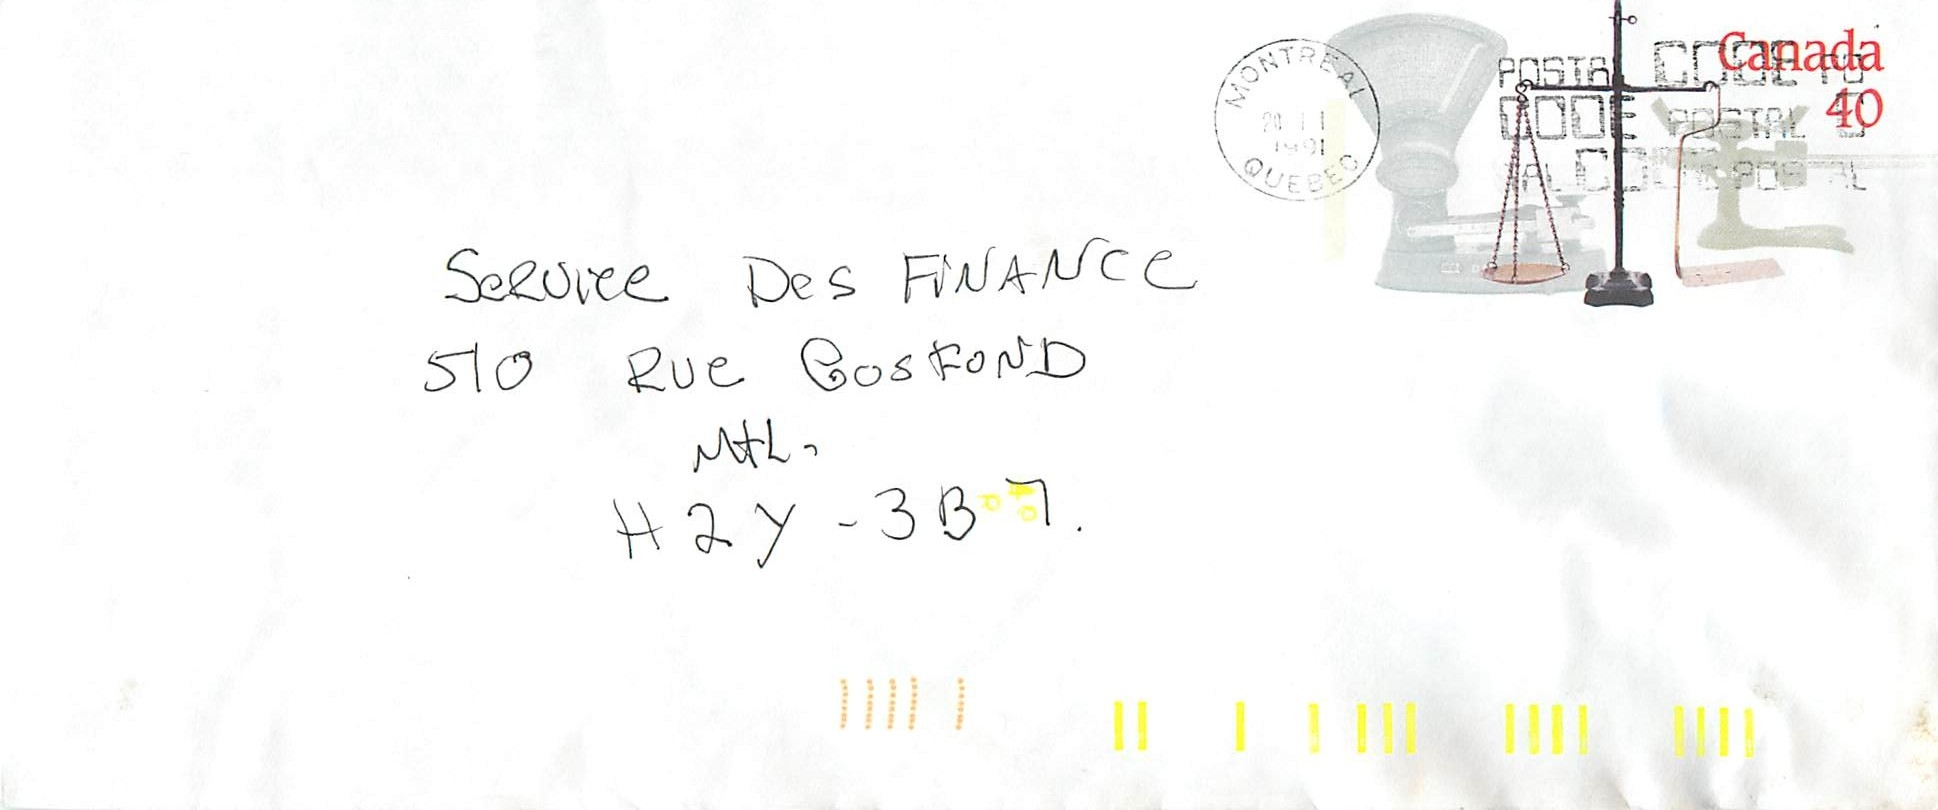 Canada
40
MONTREAL
1991
QUEBEC
POSTAL CODE
CODE POSTAL
CODE POSTAL
Service Des FINANCE
510 Rue GOSFOND
Mtl.
H2Y - 3B7.